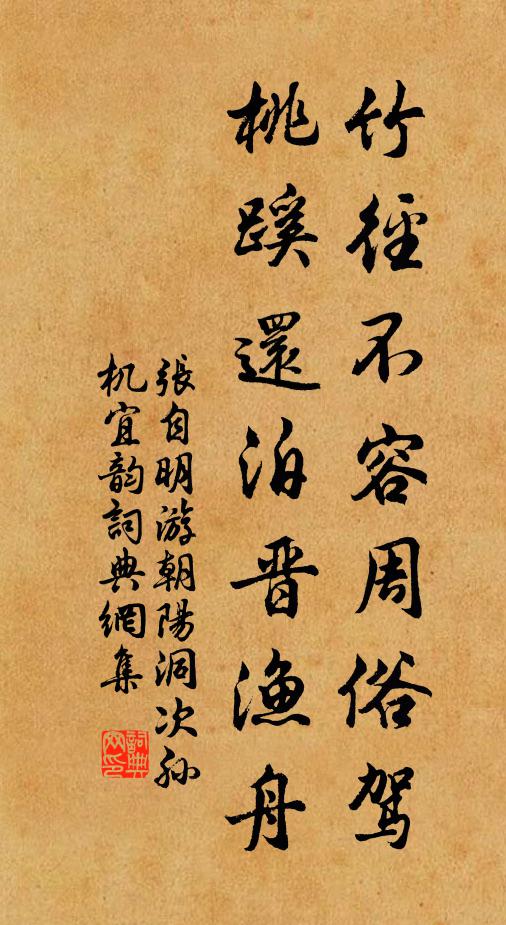 竹徑不容周俗駕
桃蹊還泊晋漁舟
張自明游朝陽洞次孙
机宜韵詞典網集
詞典
网印